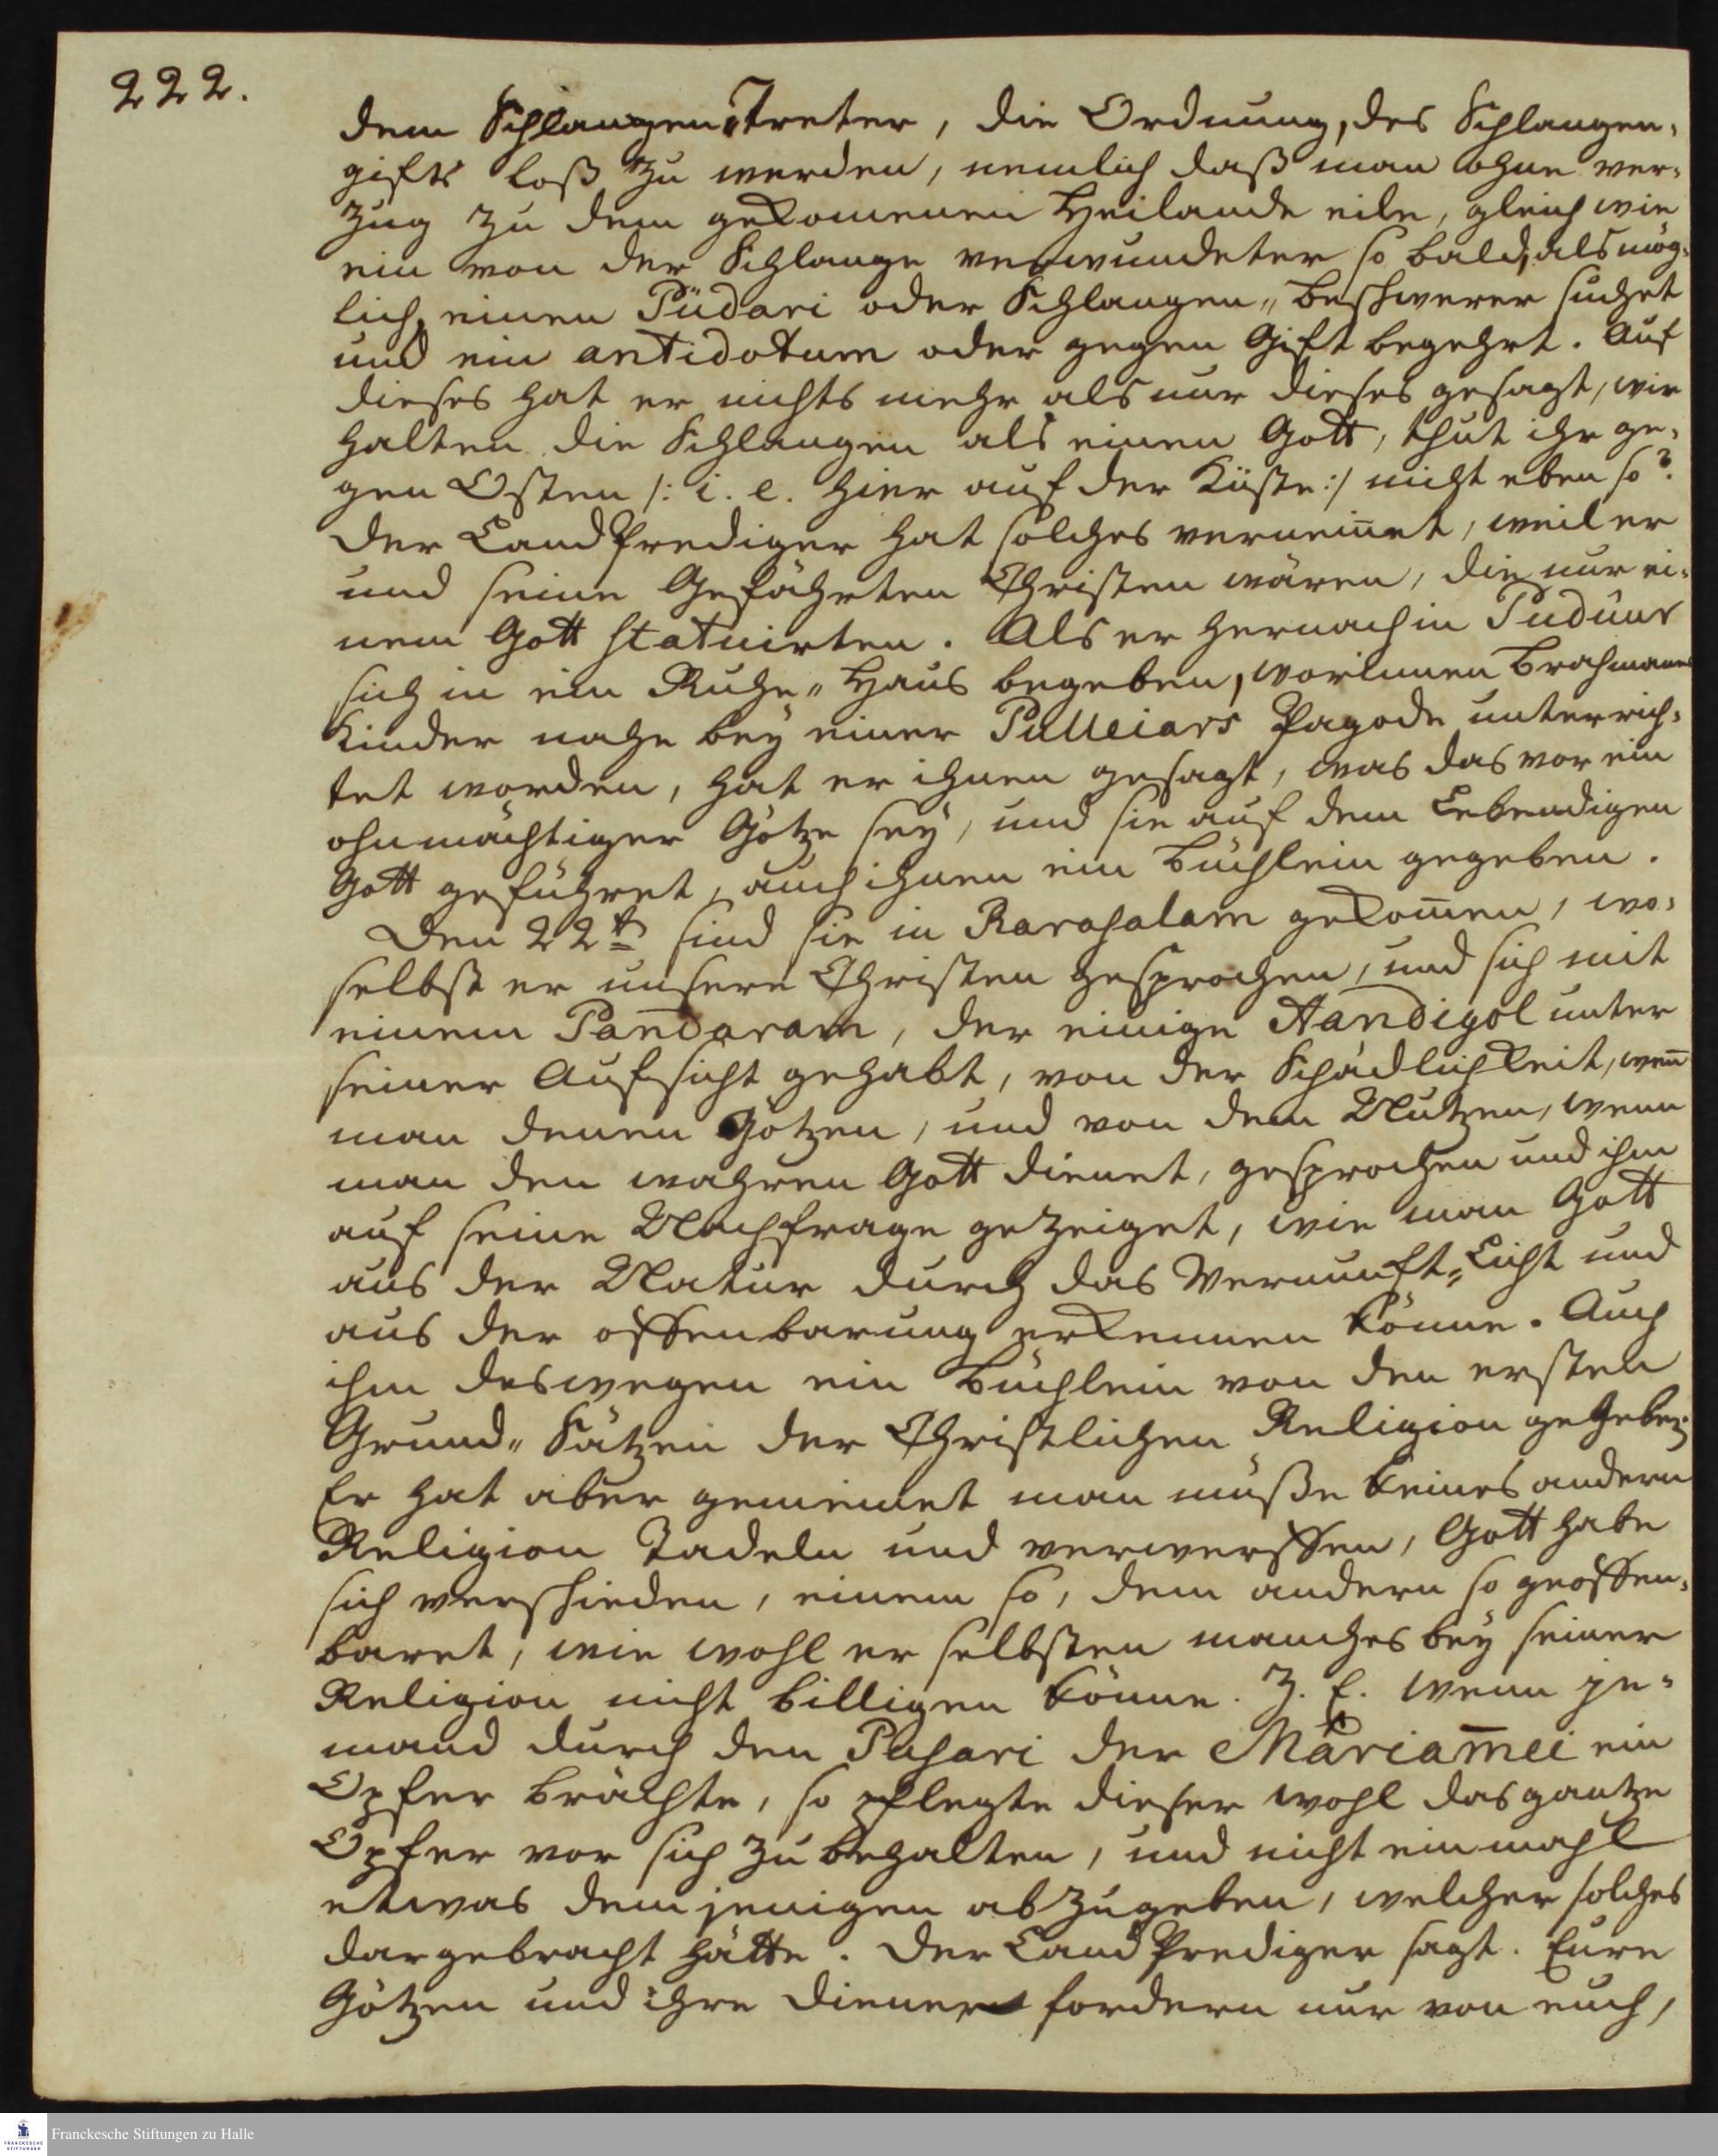 222.
dem Schlangen„Treter, die Ordnung, des Schlangen-
gifts loß zu werden, nemlich daß man ohne ver-
zug zu dem gekomenen Heilande eile, gleich wie
ein von der Schlange verwundeter so bald, als mög-
lich, einen Püdari oder Schlangen„beschwerer suchet
und ein antidotum oder gegen Gift begehrt. Auf
dieses hat er nichts mehr als nur dieses gesagt, wir
halten die Schlangen als einen Gott, thut ihr ge-
gen Osten /: i. e. hier auf der Küste :/ nicht eben so?
Der Land Prediger hat solches verneinet, weil er
und seine Gefährten Christen wären, die nur ei-
nem Gott statuirten. Als er hernach in Puduur
sich in ein Ruhe„Haus begeben, worinnen Brahmanes
Kinder nahe bey einer Pulleiars Pagode unterrich-
tet worden, hat er ihnen gesagt, was das vor ein
ohnmächtiger Götze sey, und sie auf dem Lebendigen
Gott geführet, auch ihnen ein Büchlein gegeben.
Den 22tn sind sie in Rarasalam gekom̄en, wo-
selbst er unsere Christen gesprochen, und sich mit
einem Pandaram, der einige Aandigöl unter
seiner Aufsicht gehabt, von der Schädlichkeit, wen̄
man denen Götzen, und von dem Nutzen, wenn
man den wahren Gott dienet, gesprochen und ihm
auf seine Nachfrage gezeiget, wie man Gott
aus der Natur durch das Vernunft„Licht und
aus der offenbarung erkennen könne. Auch
ihm deswegen ein Büchlein von den ersten
Grund„Sätzen der Christlichen Religion gegeben.
Er hat aber gemeinet man müße keines andern
Religion Tadeln und verwerffen, Gott habe
sich verschieden, einem so, dem andern so geoffen-
baret, wie wohl er selbsten manches bey seiner
Religion nicht billigen könne. Z. E. wenn je-
mand durch den Pusari der Máriam̄ei ein
Opfer brächte, so pflegte dieser wohl das gantze
Opfer vor sich zu behalten, und nicht einmahl
etwas demjenigen abzugeben, welcher solches
dargebracht hätte. Der Land Prediger sagt. Eure
Götzen und ihre Diener fordern nur von euch,
Franckesche Stiftungen zu Halle